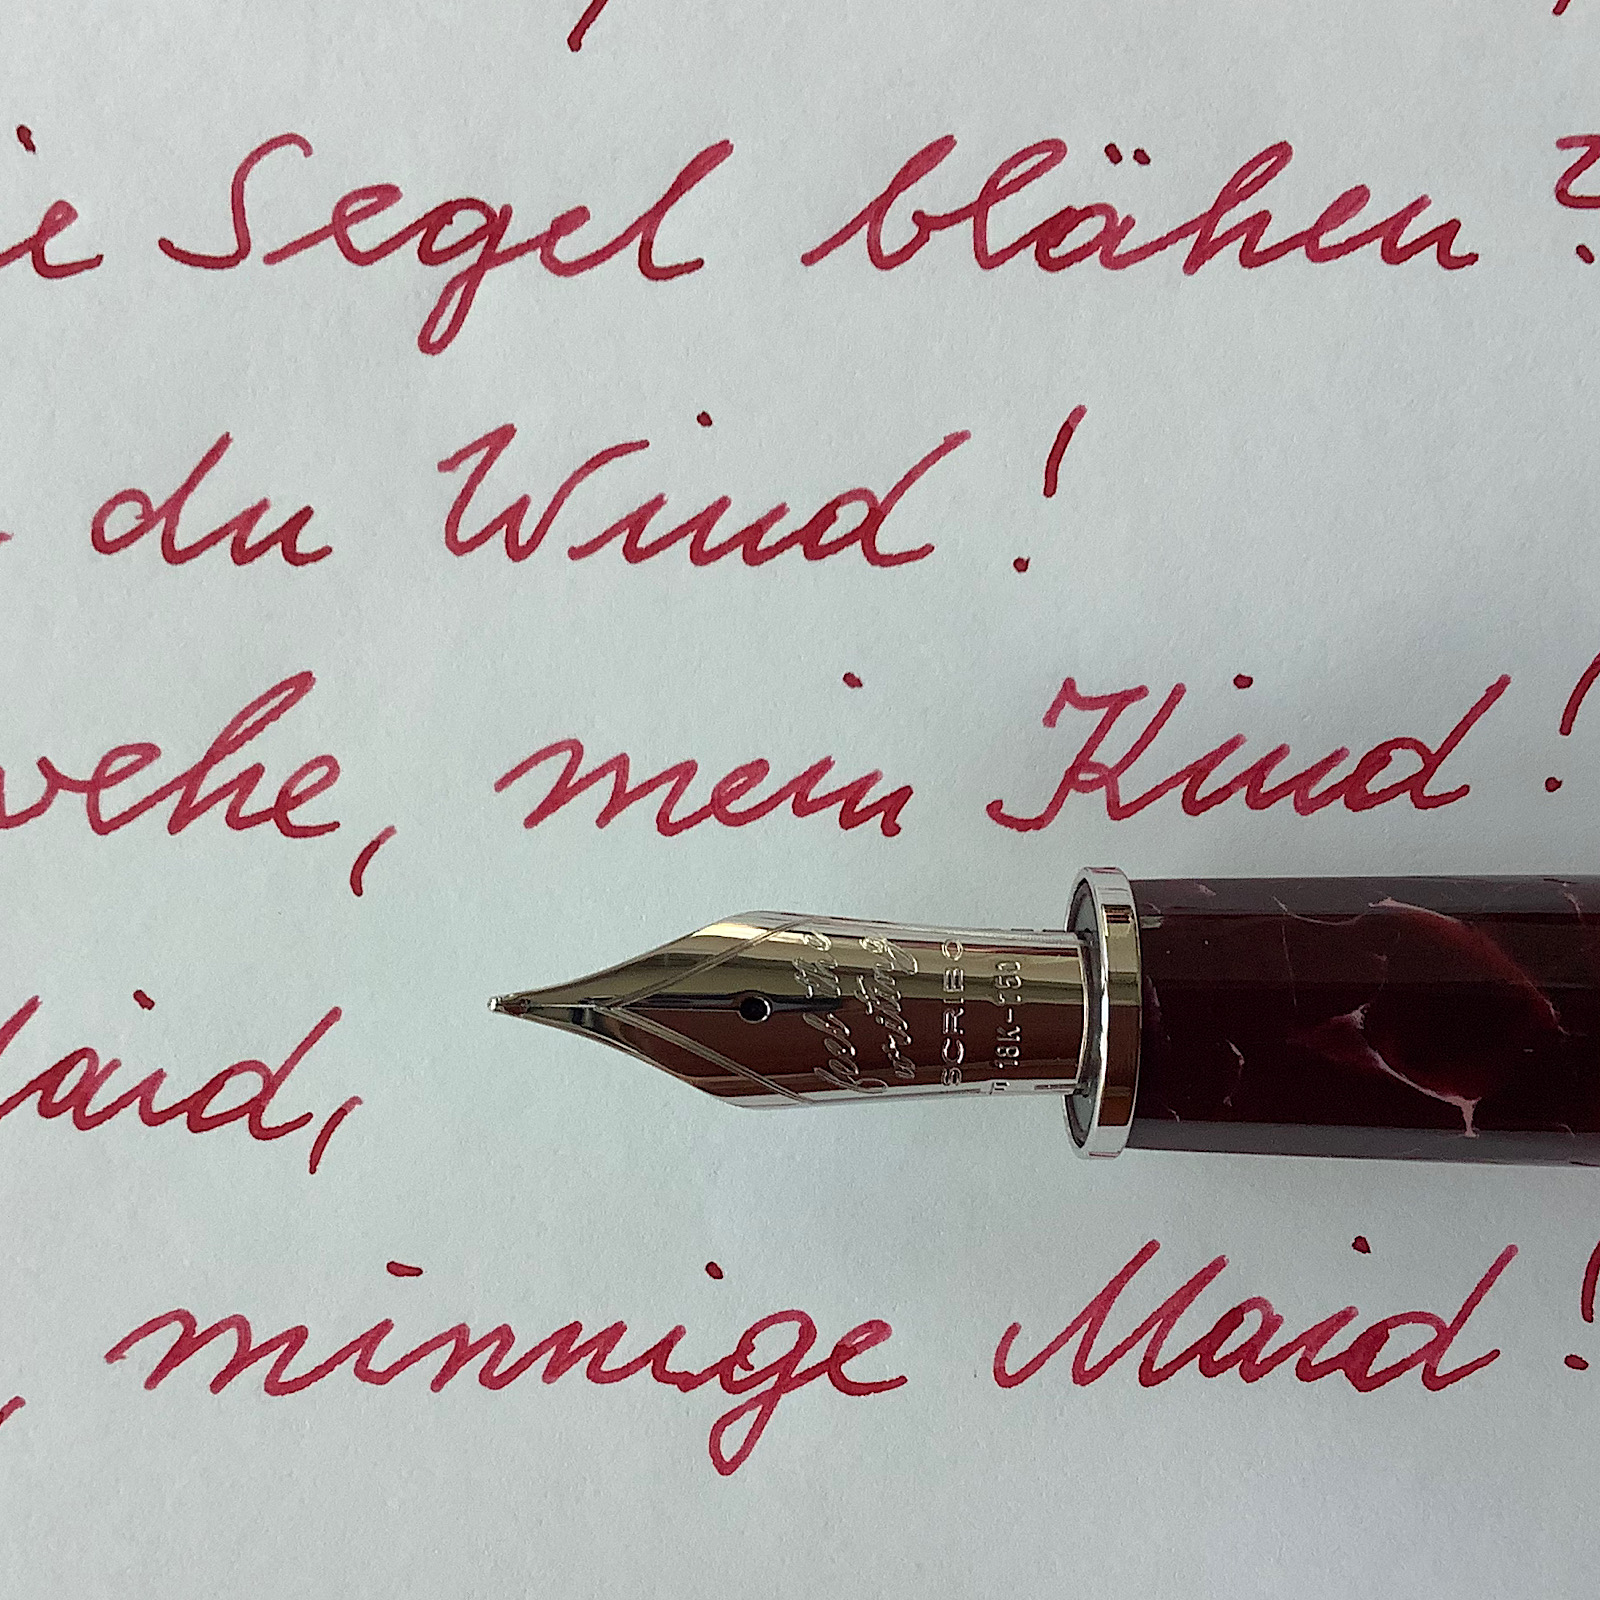 Segel blähen?
du Wind!
wehe, mein Kind!
Maid,
, minnige Maid!
feel the
writing
SCRIBO
F 18K-750